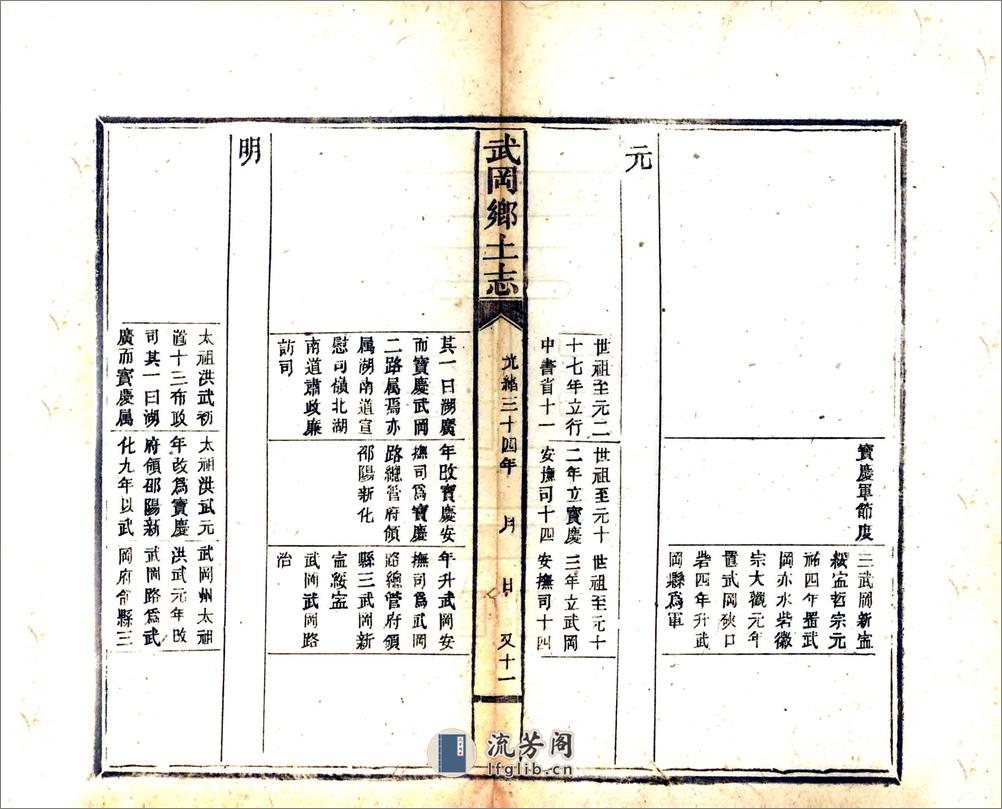 寳慶軍節度
三武岡新寍
綏寍哲宗元
祐四年置武
岡亦水砦徽
宗大觀元年
置武岡硤口
砦四年升武
岡縣為軍
元
世祖至元二
十七年立行
中書省十一
世祖至元十
二年立寶慶
安撫司十四
世祖至元十
三年立武岡
安撫司十四
武岡鄉土志
光緒三十四年 月 日 又十一
其一曰湖廣
而寶慶武岡
二路属焉亦
属湖南道宣
慰司嶺北湖
南道肅政廉
訪司
年改寶慶安
撫司為寶慶
路總管府領
邵陽新化
年升武岡安
撫司為武岡
路總管府領
縣三武岡新
寍綏寍
武岡武岡路
治
明
太祖洪武初
置十三布政
司其一曰湖
廣而寶慶属
太祖洪武元
年改為寶慶
府領邵陽新
化九年以武
武岡州太祖
洪武元年改
武岡路為武
岡府領縣三
流芳阁
lfglib.cn